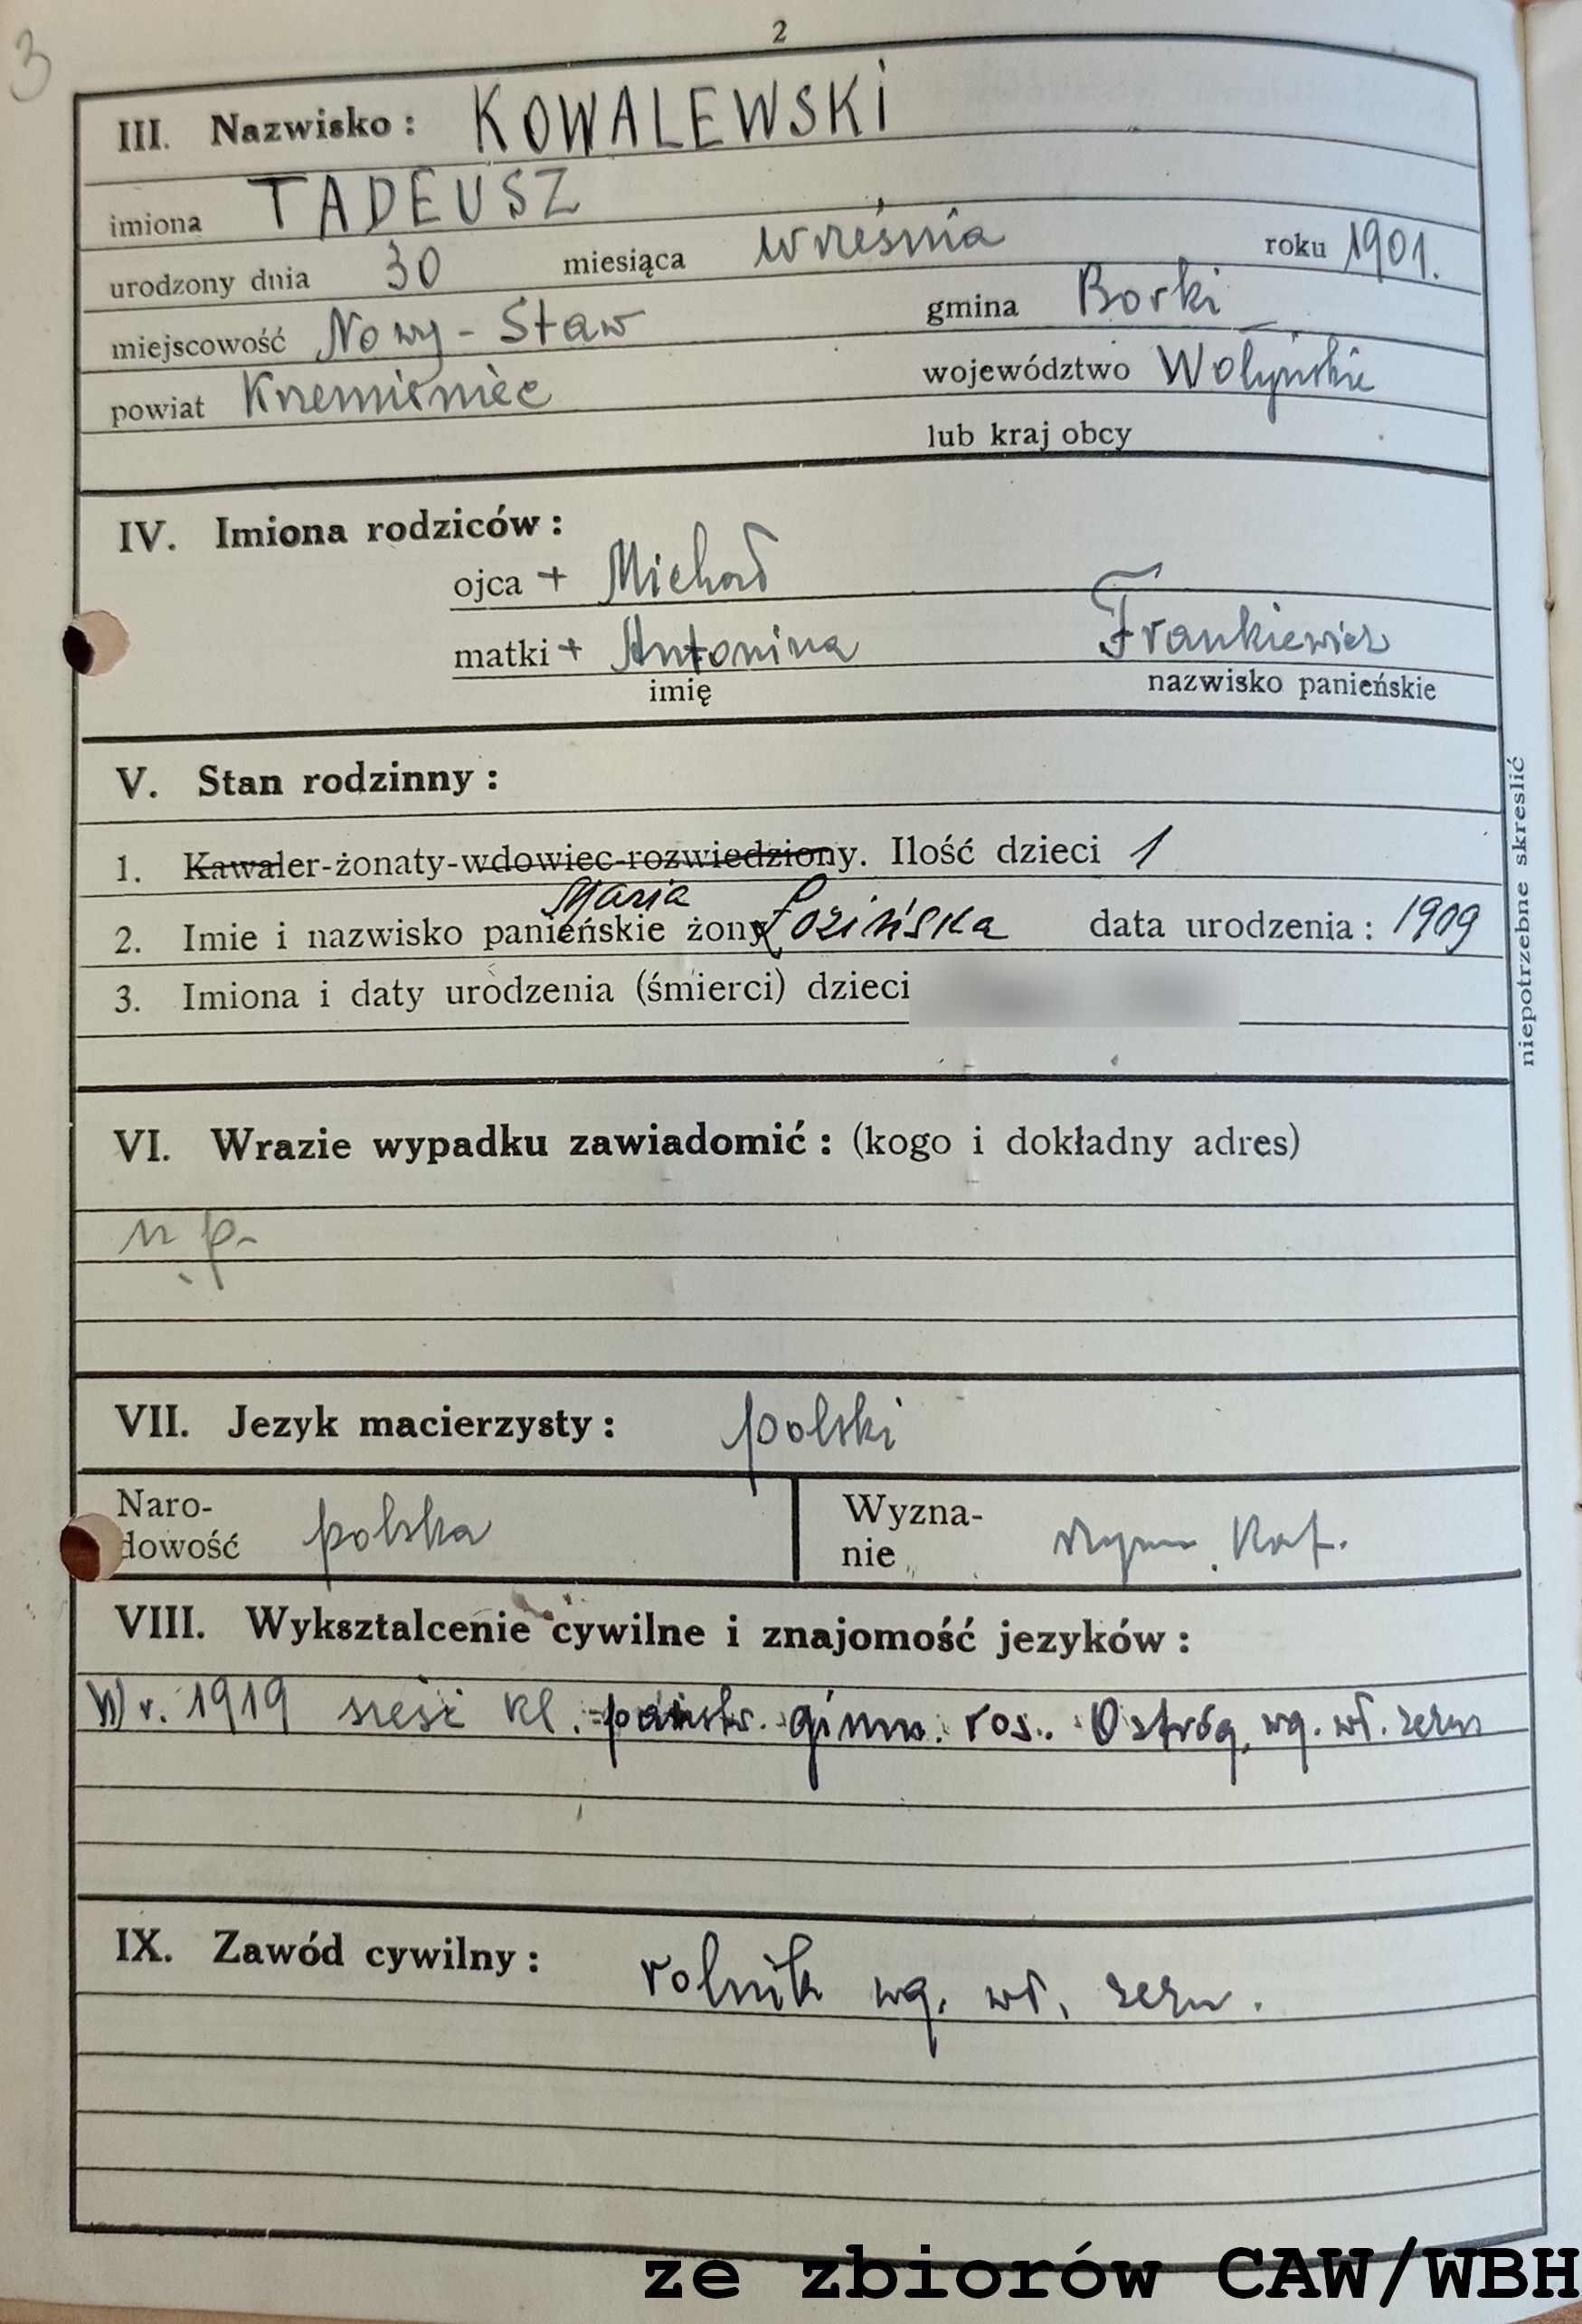 3
2
III. Nazwisko: KOWALEWSKI
imiona TADEUSZ
urodzony dnia 30 miesiąca września roku 1901.
miejscowość Nowy-Staw gmina Borki
powiat Krzemieniec województwo Wołyńskie
lub kraj obcy
IV. Imiona rodziców:
ojca + Michał
matki + Antonina Frankiewicz
imię nazwisko panieńskie
V. Stan rodzinny:
1. Kawaler-żonaty-wdowiec-rozwiedziony. Ilość dzieci 1
2. Imie i nazwisko panieńskie żony Maria Łozińska data urodzenia: 1909
3. Imiona i daty urodzenia (śmierci) dzieci
niepotrzebne skreslić
VI. Wrazie wypadku zawiadomić: (kogo i dokładny adres)
n. p.
VII. Jezyk macierzysty: polski
Naro-
dowość polska
Wyzna-
nie rzym. kat.
VIII. Wyksztalcenie cywilne i znajomość jezyków:
W r. 1919 sześć kl. państw. gimn. ros. Ostróg, wg. wł. zezn
IX. Zawód cywilny: rolnik wg. wł. zezn.
ze zbiorów CAW/WBH